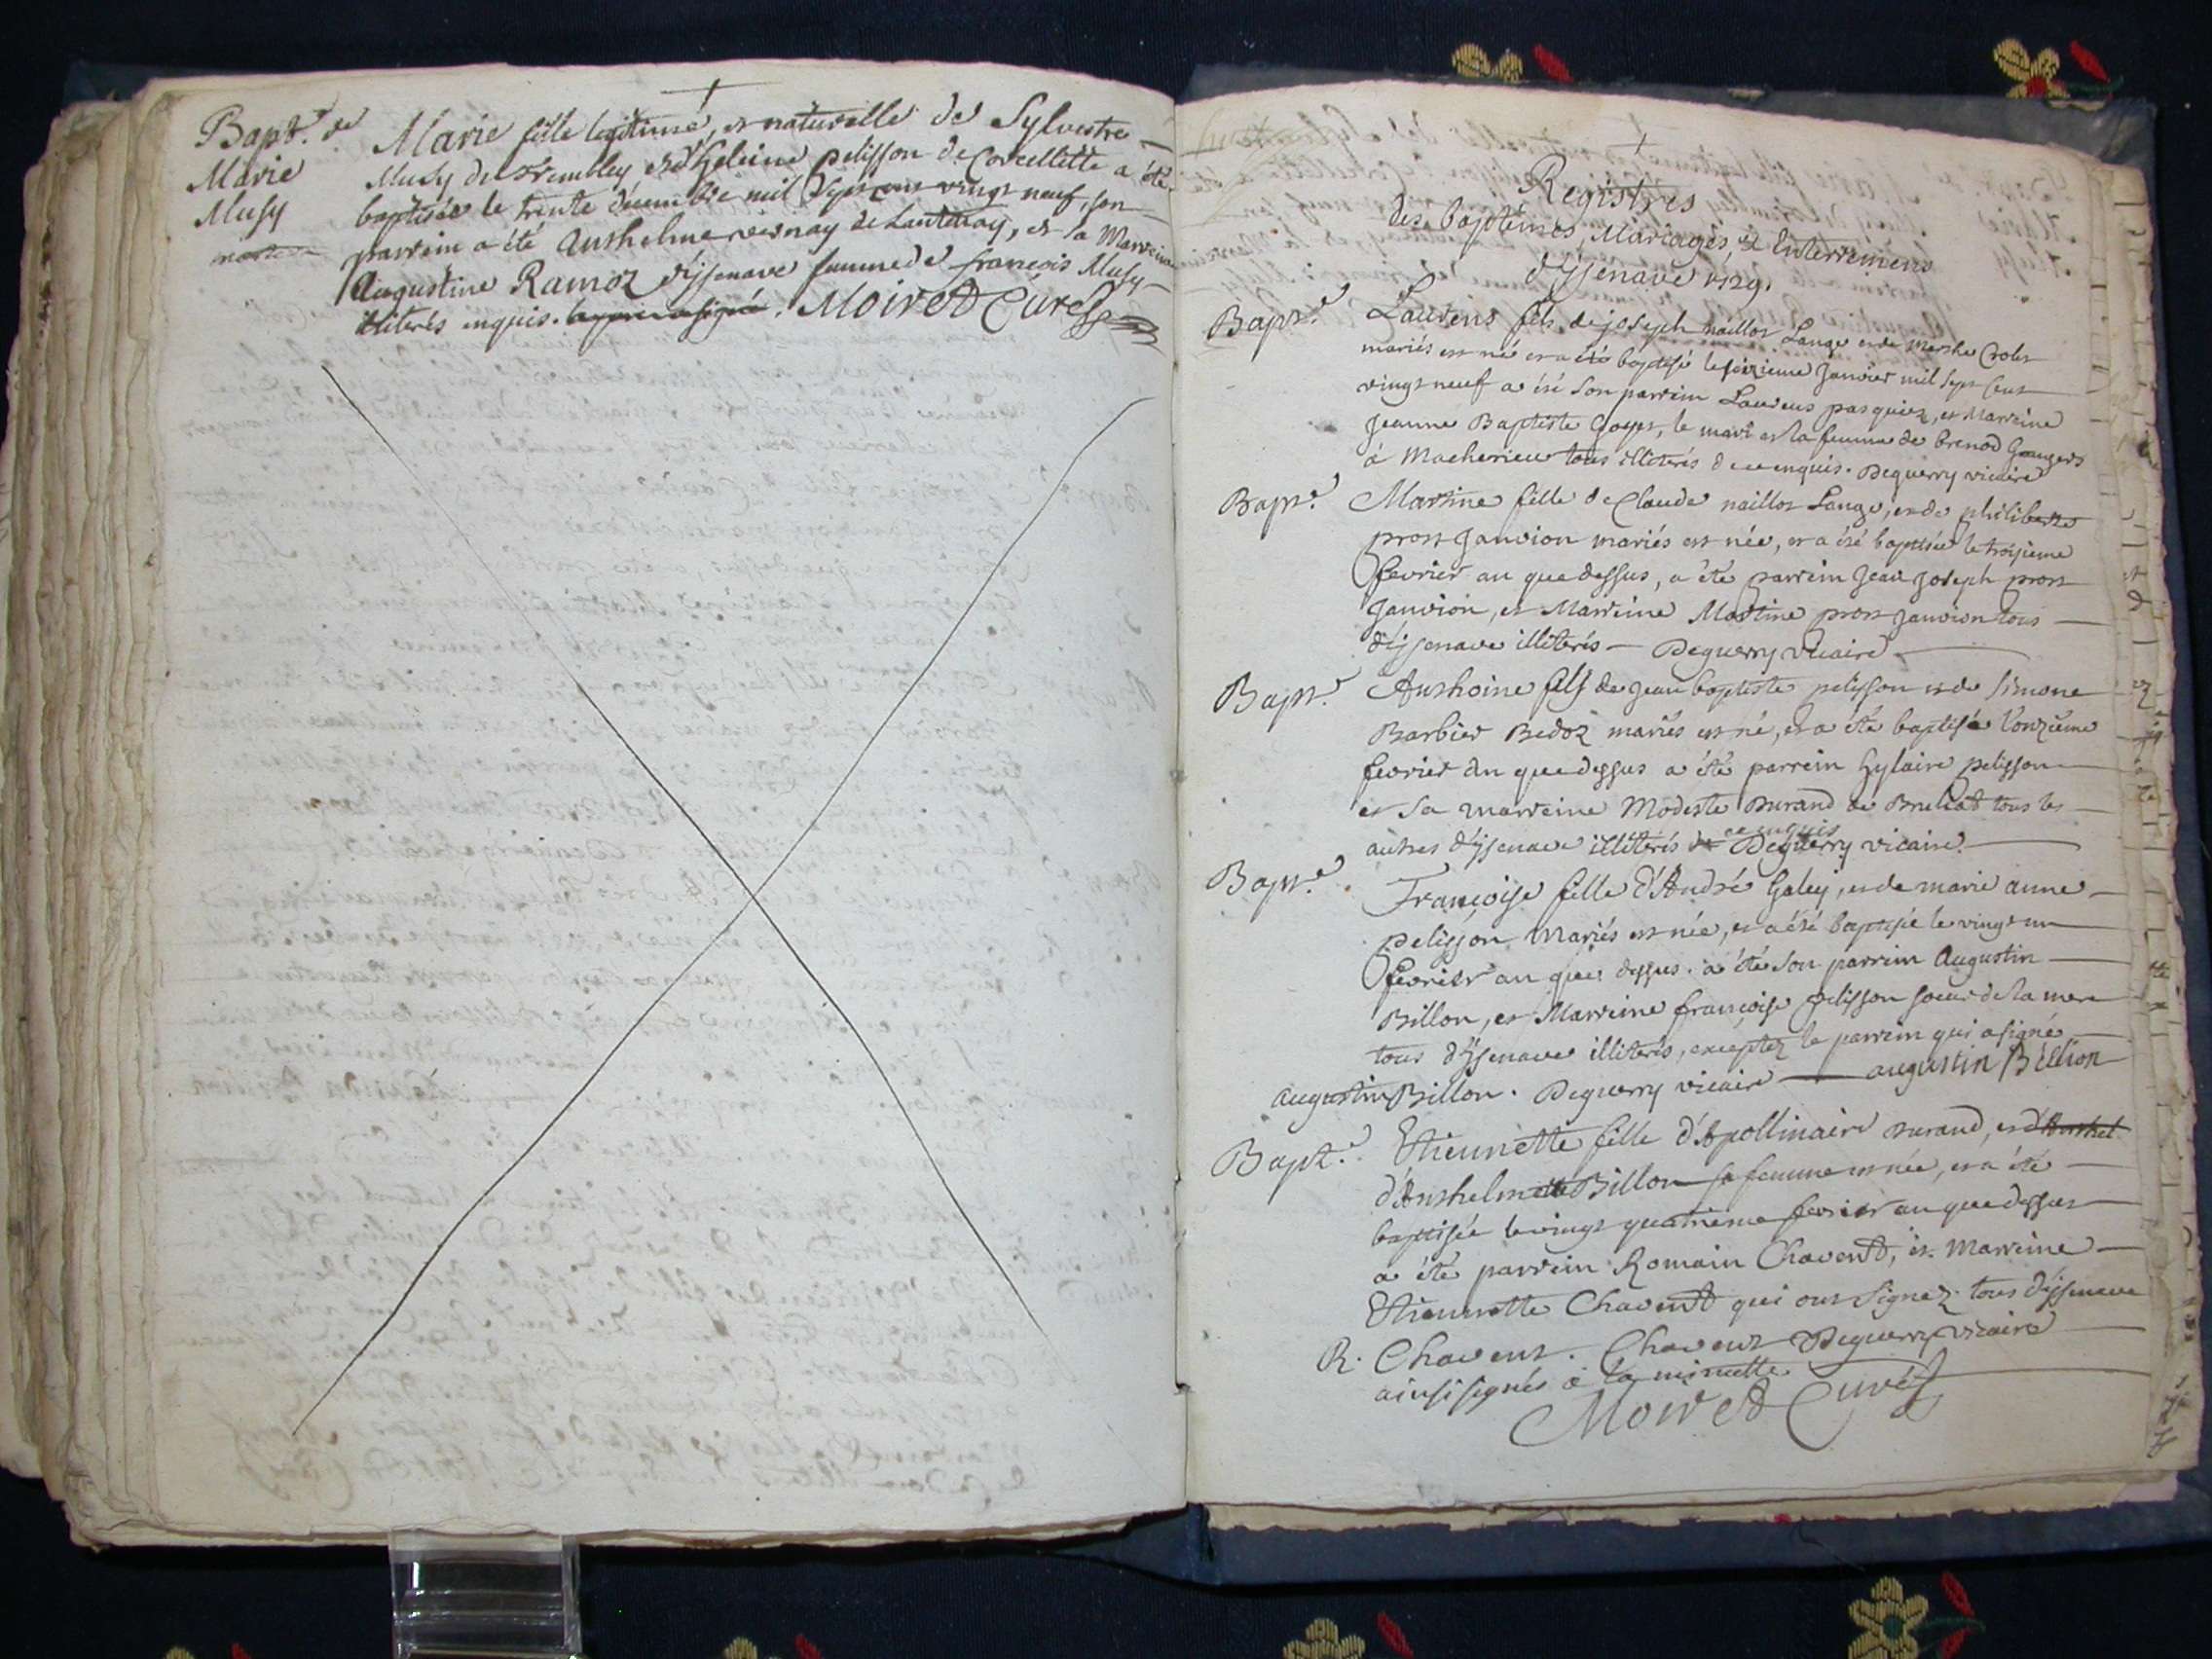 Bapt.e de
Marie
Musy
Marie fille legitime, et naturelle de Sylvestre
Musy du Trembley et d'heleine pelisson de Corcellette a été
baptisée le trente decembre mil sept cens vingt neuf, son
parrein a été Anthelme de Lantenay, et la Marreine
Augustine Ramoz d'yssenave femme de françois Musy
illiterés enquis. Moiret Curé
Registres
des baptémes, Mariages et Enterremens
d'yssenave 1729.
Bapt.e
Laurens fils de joseph naillot Lange et de Marthe
mariés est né et a été baptisé le seizieme Janvier mil sept cens
vingt neuf a été son parrein Laurens pasquier, et Marreine
Jeanne Baptiste Goyet, le mari et la femme de brenod Grangers
à Macherieu tous illiterés de ce enquis. Deguerry vicaire
Bapt.e
Martine fille de Claude naillot Lange, et de philiberte
prost Janvion mariés est née, et a été baptisée le troisieme
fevrier an que dessus, a été parrein Jean Joseph prost
Janvion, et Marreine Martine prost Janvion tous
d'yssenave illiterés — Deguerry vicaire
Bapt.e
Anthoine fils de Jean baptiste pelisson et de simone
Barbier Bedoz mariés est né, et a été baptisé l'onzieme
fevrier an que dessus a été parrein hylaire pelisson
et sa marreine Modeste Durand de Brulat tous les
autres d'yssenave illiterés de ce enquis Deguerry vicaire
Bapt.e
Françoise fille d'André Galey, et de marie anne
pelisson mariés est née, et a été baptisée le vingt un
fevrier an que dessus. a été son parrein Augustin
Billon, et Marreine françoise pelisson soeur de la mere
tous d'yssenave illiterés, exceptez le parrein qui a signé
augustin Billon. Deguerry vicaire — augustin Billion
Bapt.e
Etiennette fille d'Apollinaire Durand, et d'Anthel
d'Anthelmette Billon sa femme est née, et a été
baptisée le vingt quatrieme fevrier an que dessus
a été parrein Romain Chavent, et Marreine
Etiennette Chavent qui ont signez tous d'yssenave
R. Chavent. Chavent Deguerry vicaire
ainsi signés à la minutte
Moiret Curé